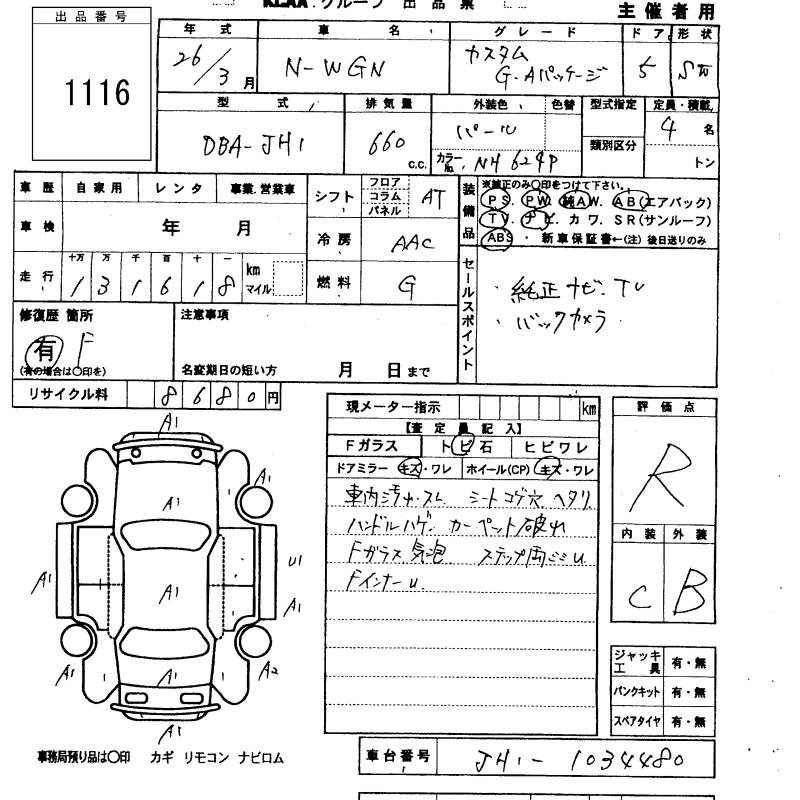 KLAA.グループ 出品票
主催者用
出品番号
1116
年式 車名 グレード ドア 形状
26/3月 N-WGN カスタム G・Aパッケージ 5
型式 排気量 外装色 色替 型式指定 定員・積載
DBA-JH1 660 c.c. パール 類別区分 4名
カラーNo. NH624P トン
車歴 自家用 レンタ 事業.営業車
車検 年 月
走行 十万 万 千 百 十 一
1 3 1 6 1 8 km マイル
シフト フロア コラム パネル AT
冷房 AAC
燃料 G
装備品 ※純正のみ○印をつけて下さい。
PS. PW. 純AW. AB(エアバック)
TV. ナビ. カワ. SR(サンルーフ)
ABS・新車保証書←(注)後日送りのみ
セールスポイント
・純正ナビ・TV
・バックカメラ
修復歴 箇所
有 F
(有の場合は○印を)
注意事項
名変期日の短い方 月 日まで
リサイクル料 8680円
現メーター指示 km
【査定員記入】
Fガラス トビ石 ヒビワレ
ドアミラー キズ・ワレ ホイール(CP) キズ・ワレ
車内汚れ・スレ シートコゲ穴 ヘタリ
ハンドルハゲ カーペット破れ
Fガラス気泡 ステップ両ミミU
FインナーU
評価点
R
内装 外装
C B
ジャッキ工具 有・無
パンクキット 有・無
スペアタイヤ 有・無
A1
A1 A1
A1 A1 U1
A1
A1 A1 A2
A1
事務局預り品は○印 カギ リモコン ナビロム
車台番号 JH1-1034480